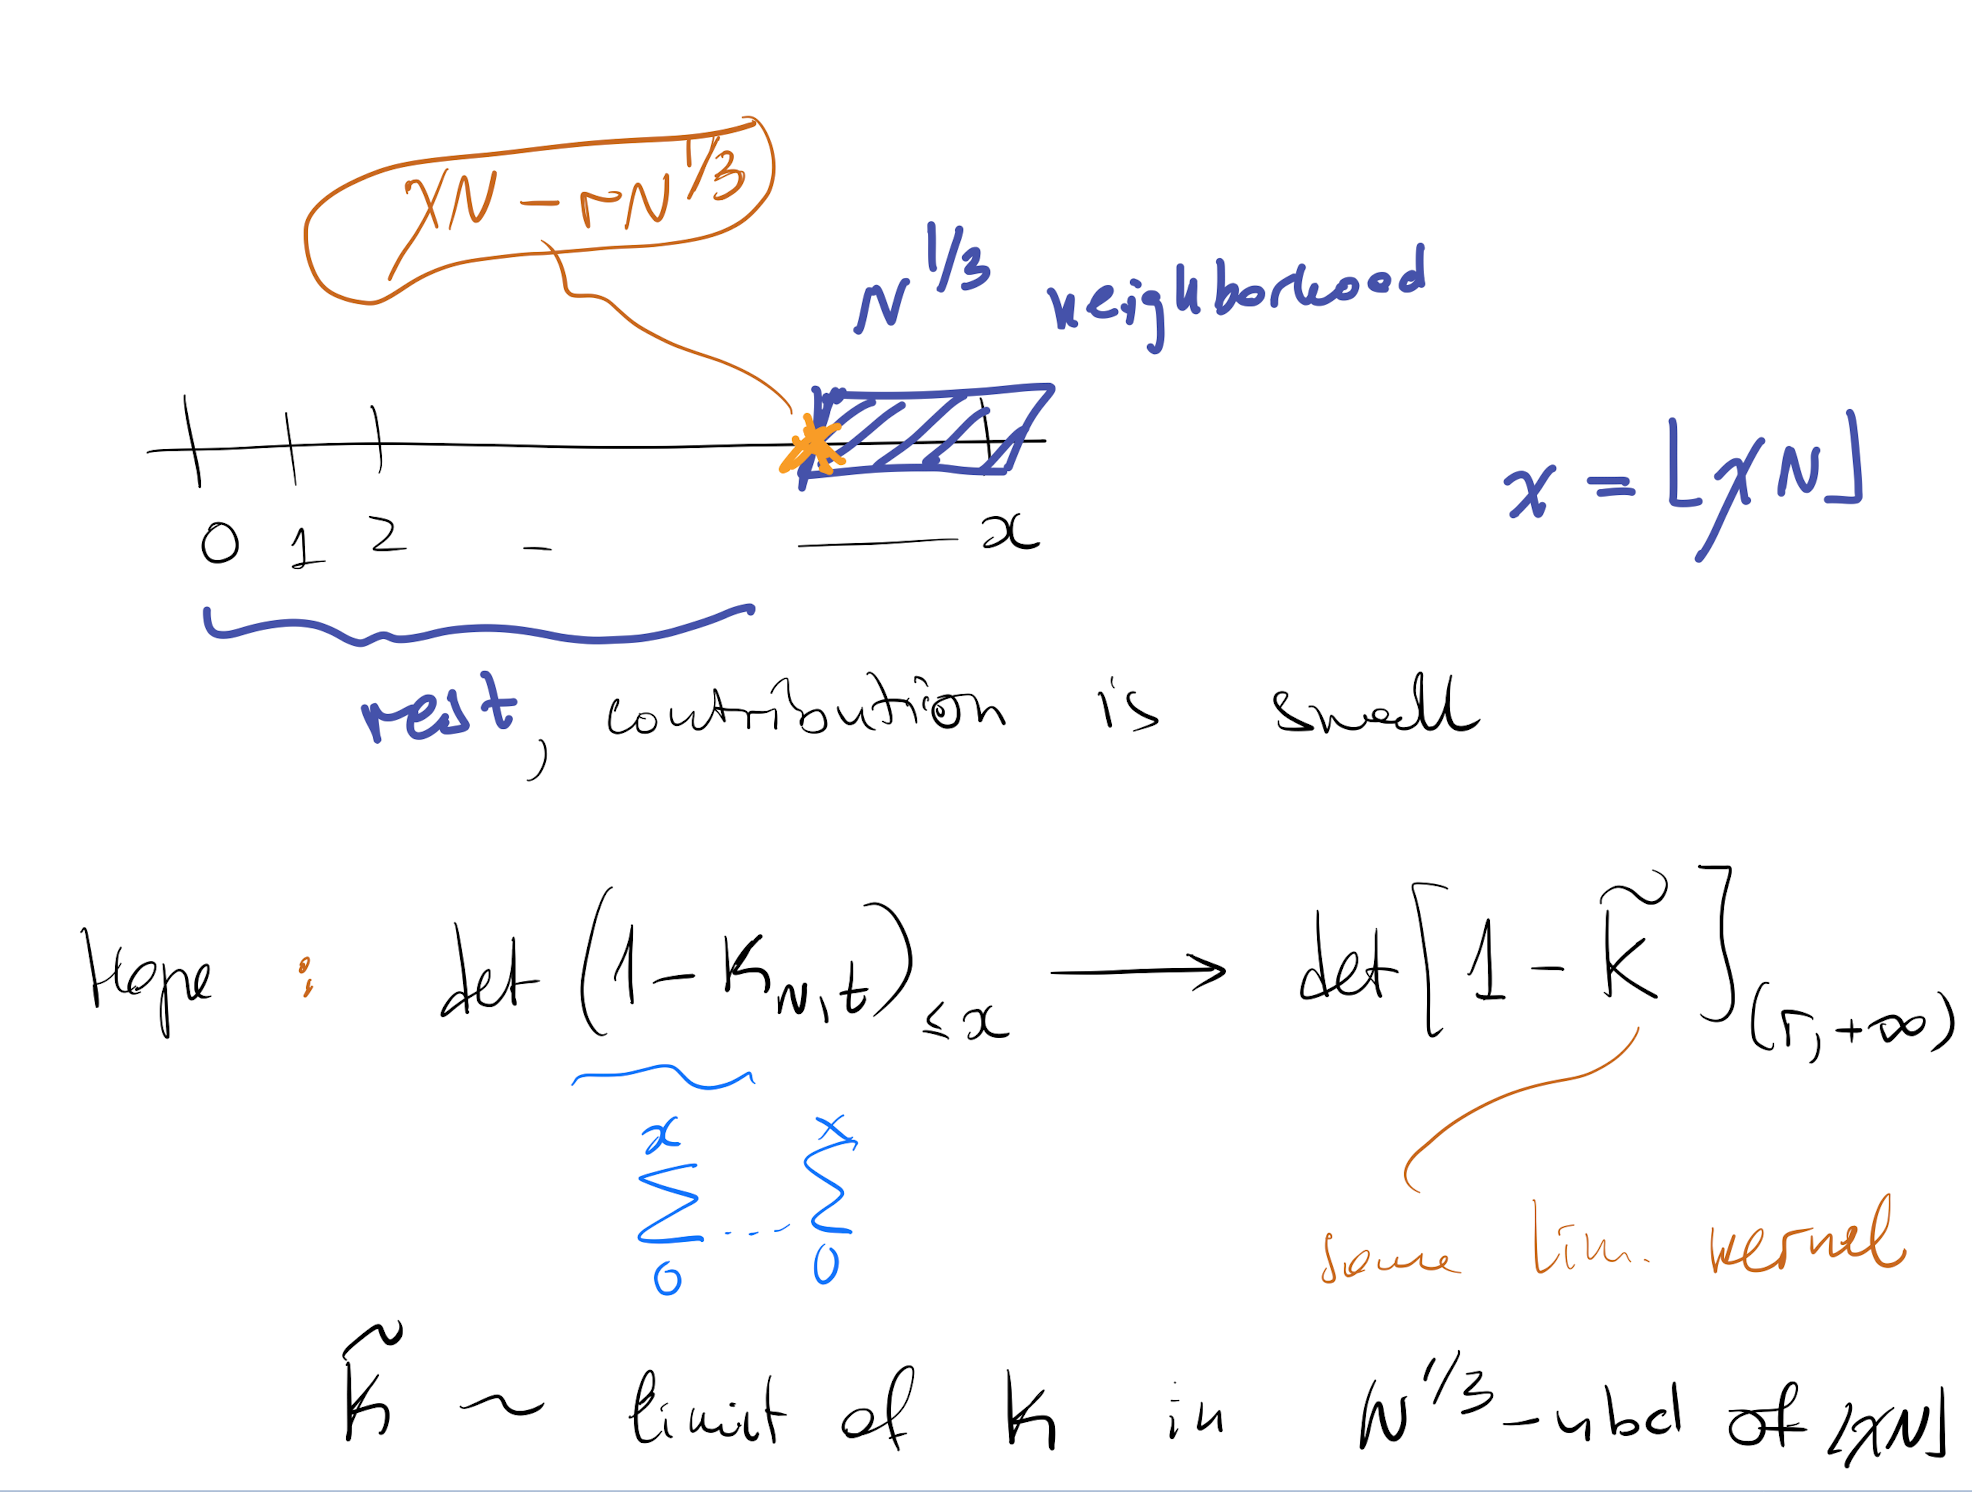 χN − rN^{1/3}
N^{1/3} neighborhood
x = ⌊χN⌋
0 1 2 - — x
rest, contribution is small
Hope : det (1 − K_{N,t})_{≤ x} ⟶ det [1 − K̃]_{(r, +∞)}
∑_{0}^{x} .... ∑_{0}^{x}
some lim. kernel
K̃ ~ limit of K in N^{1/3} - nbd of ⌊χN⌋